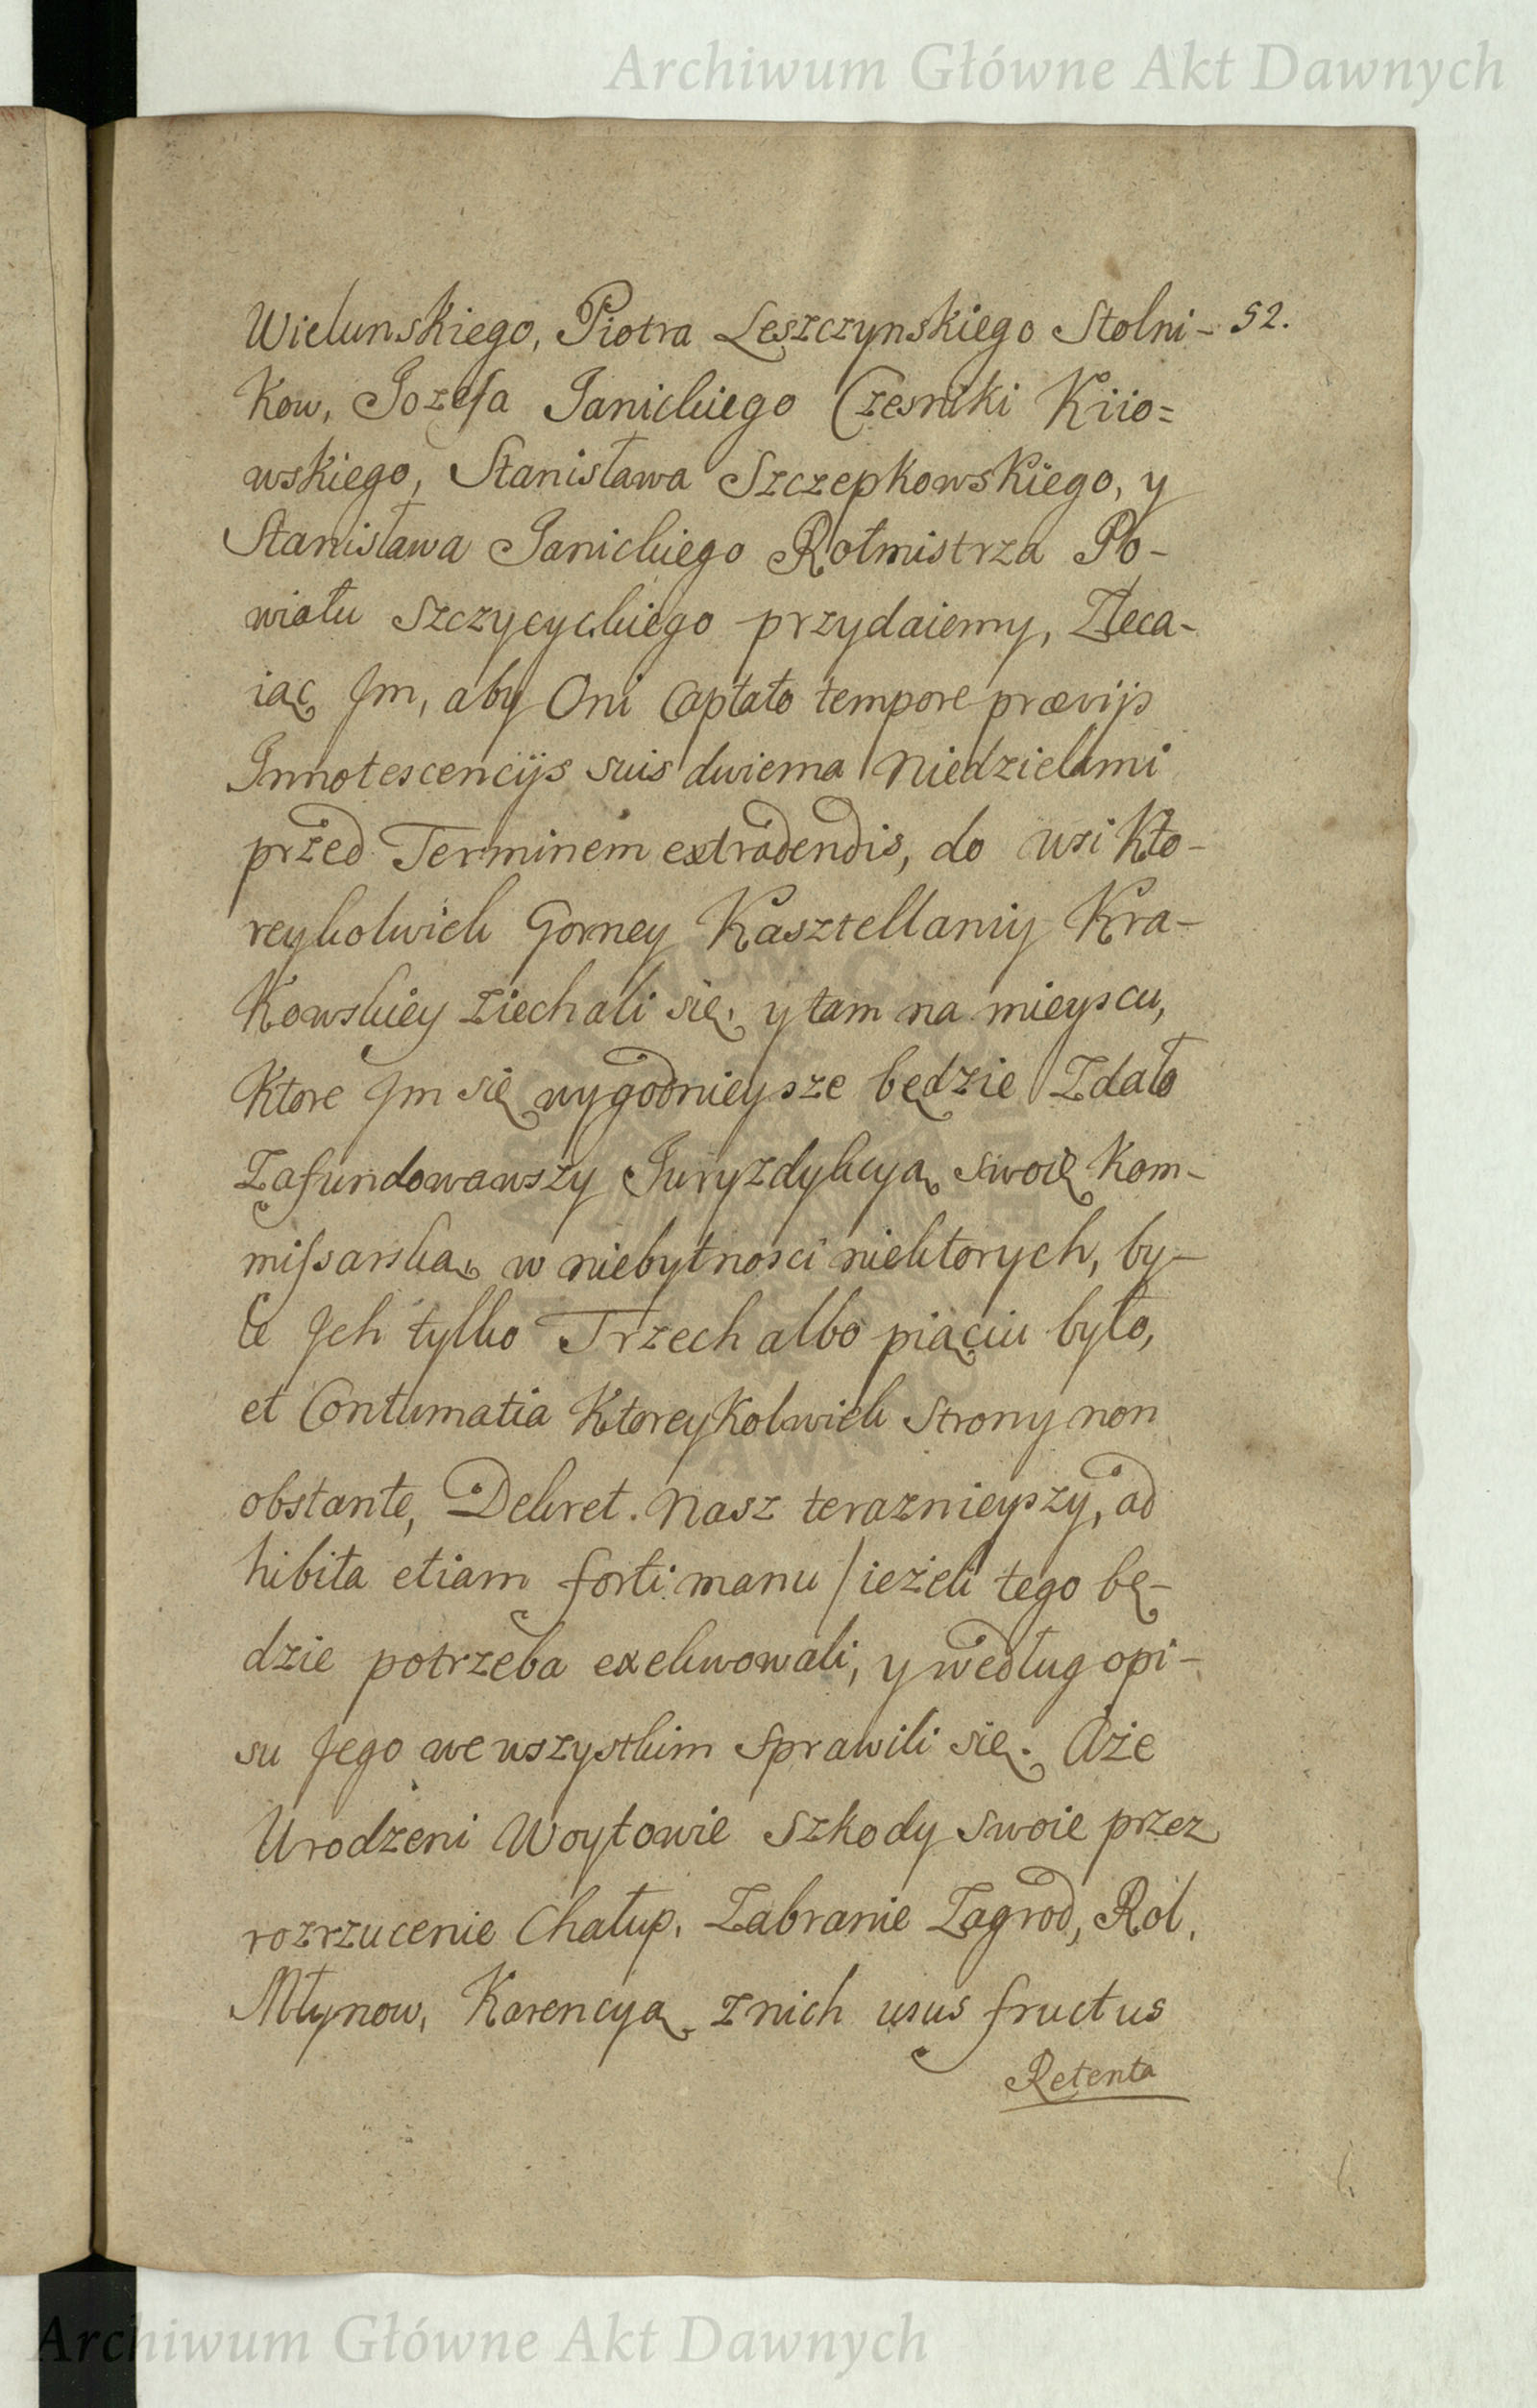 Archiwum Główne Akt Dawnych
Wielunskiego, Piotra Leszczynskiego Stolni- 52.
kow, Jozefa Janickiego Czesniki Kiio=
wskiego, Stanisława Szczepkowskiego, y
Stanisława Janickiego Rotmistrza Po-
wiatu Szczycyckiego przydaiemy, Zleca-
iąc Jm, aby Oni Captato tempore prævijs
Innotescencijs suis dwiema Niedzielami
przed Terminem extradendis, do wsi Kto-
reykolwiek Gorney Kasztellaniy Kra-
kowskiey ziechali się, y tam na mieyscu,
Ktore Jm się wygodnieysze będzie Zdało
Zafundowawszy Juryzdykcyą swoię Kom-
missarską, w niebytnosci niektorych, by-
le Jch tylko Trzech albo piąciu było,
et Contumatia Ktoreykolwiek Strony non
obstante, Dekret. Nasz teraznieyszy, ad
hibita etiam forti manu / ieżeli tego bę-
dzie potrzeba exekwowali, y według opi-
su Jego we wszystkim Sprawili się. Aże
Urodzeni Woytowie Szkody swoie przez
rozrzucenie Chałup, Zabranie Zagrod, Rol,
Młynow, Karencyą z nich usus fructus
Retenta
Archiwum Główne Akt Dawnych